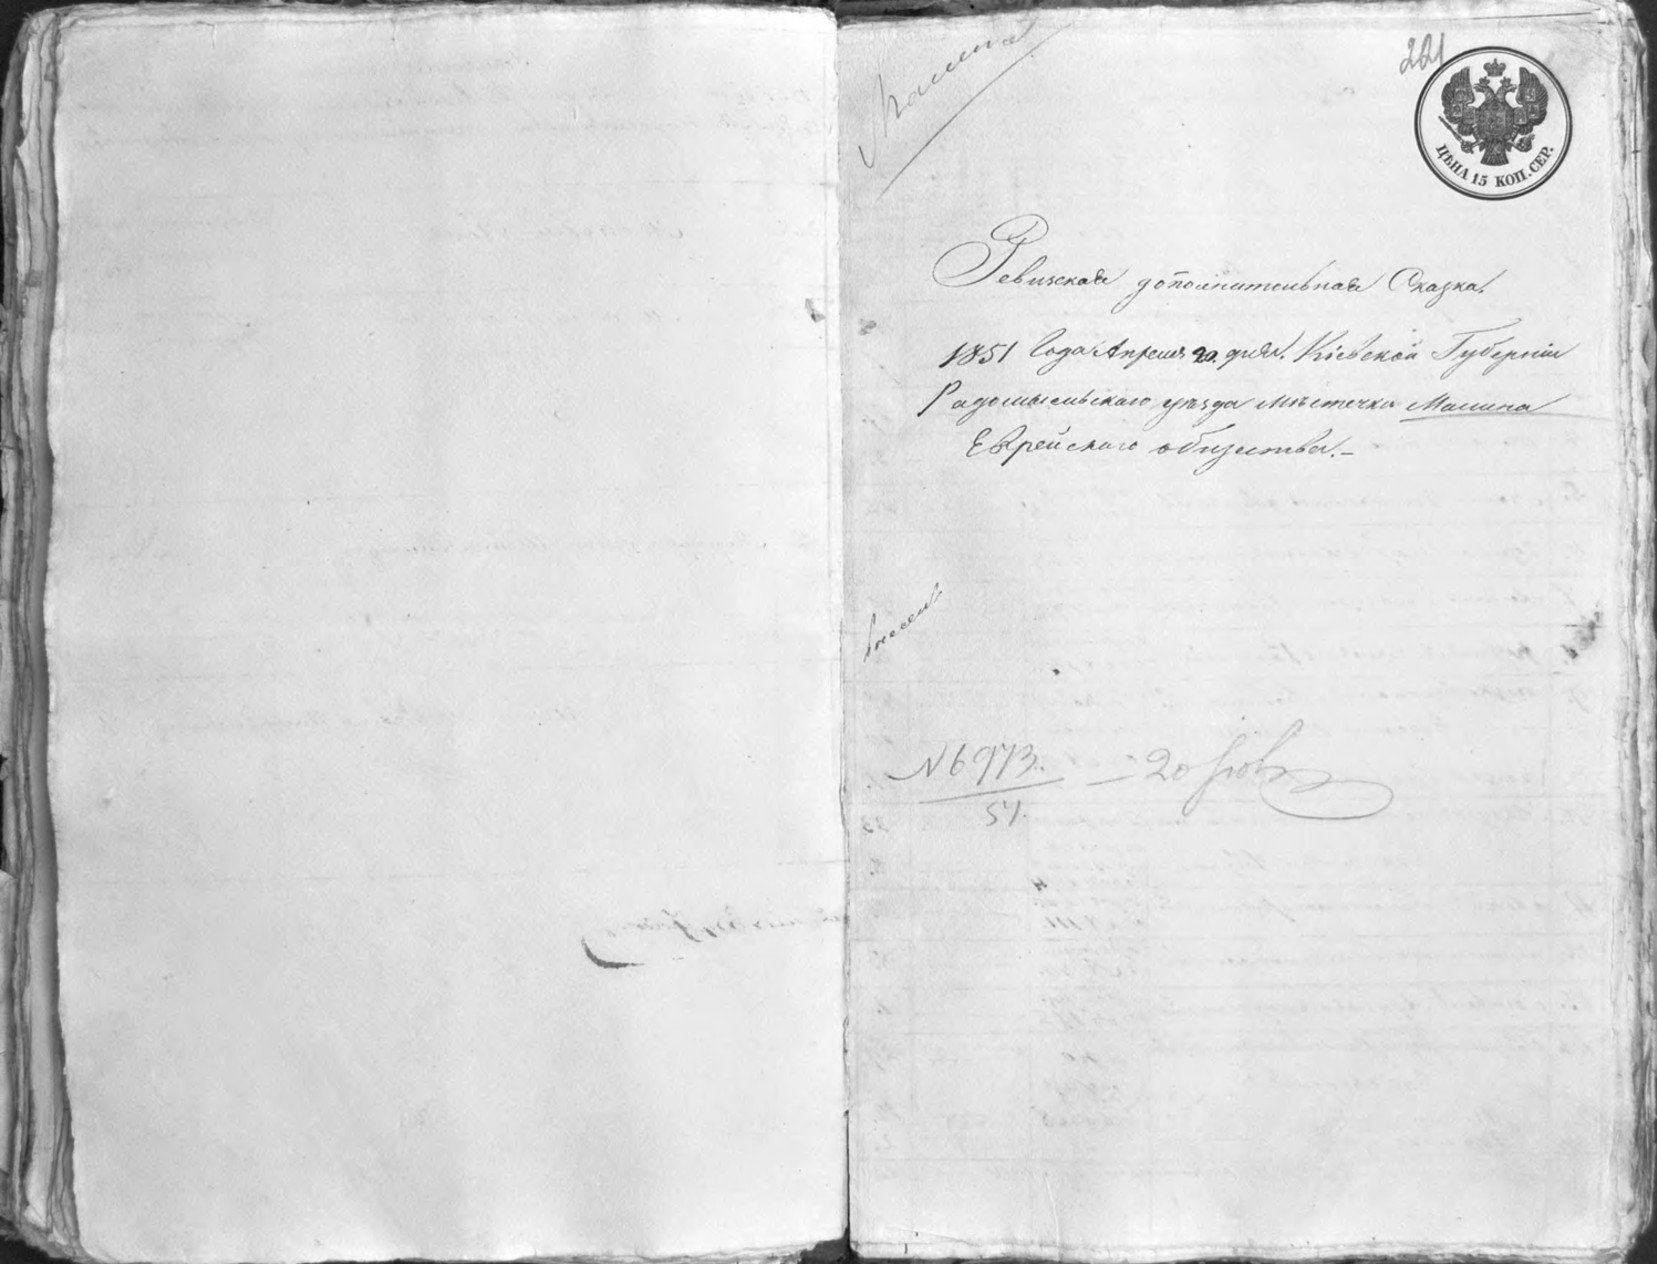 221
Малина
ЦѢНА 15 КОП. СЕР.
Ревизская дополнительная Сказка,
1851 Года Апреля 20. дня. Кіевской Губерніи
Радомысльскаго уѣзда мѣстечка Малина
Еврейскаго общества.–
№6973.
51.